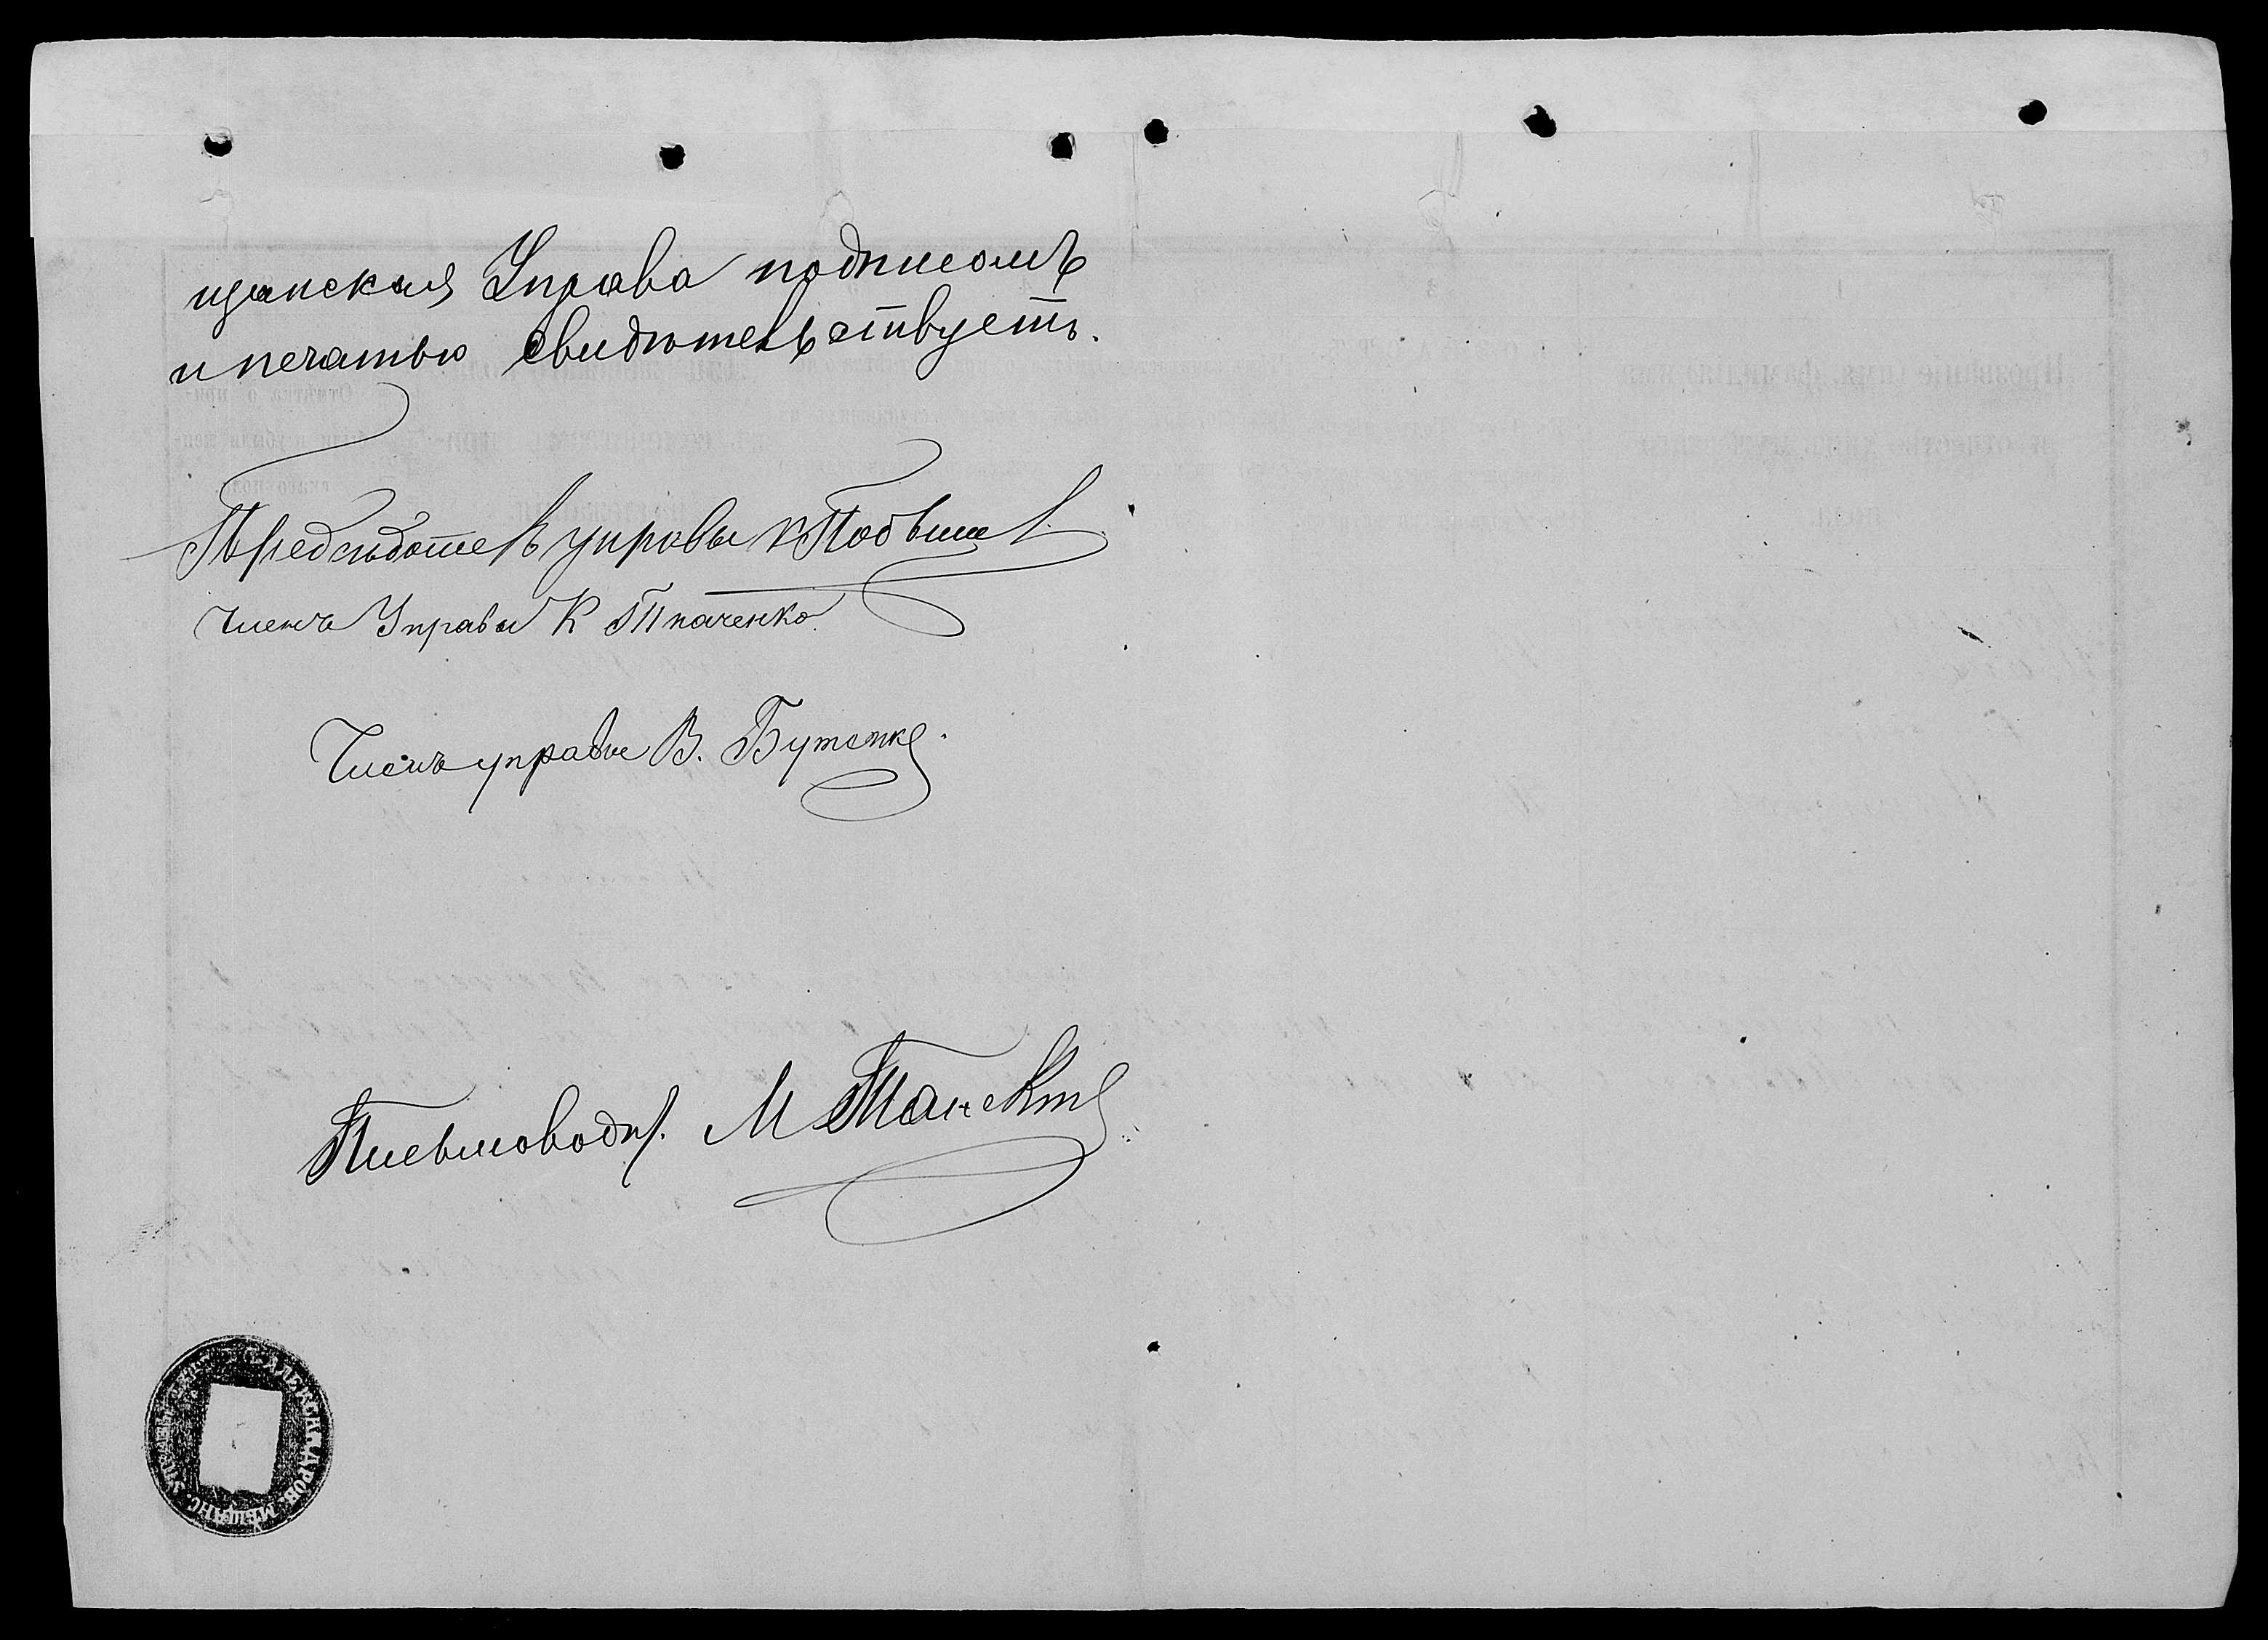 щанская Управа подписомъ
и печатью свидѣтельствуетъ.
Предсѣдатель управы К
Членъ Управы К Ткаченко
Членъ управы В. Бутенко.
Письмоводит. М
АЛЕКСАНДРОВ. МѢЩАНС. УПРАВЫ